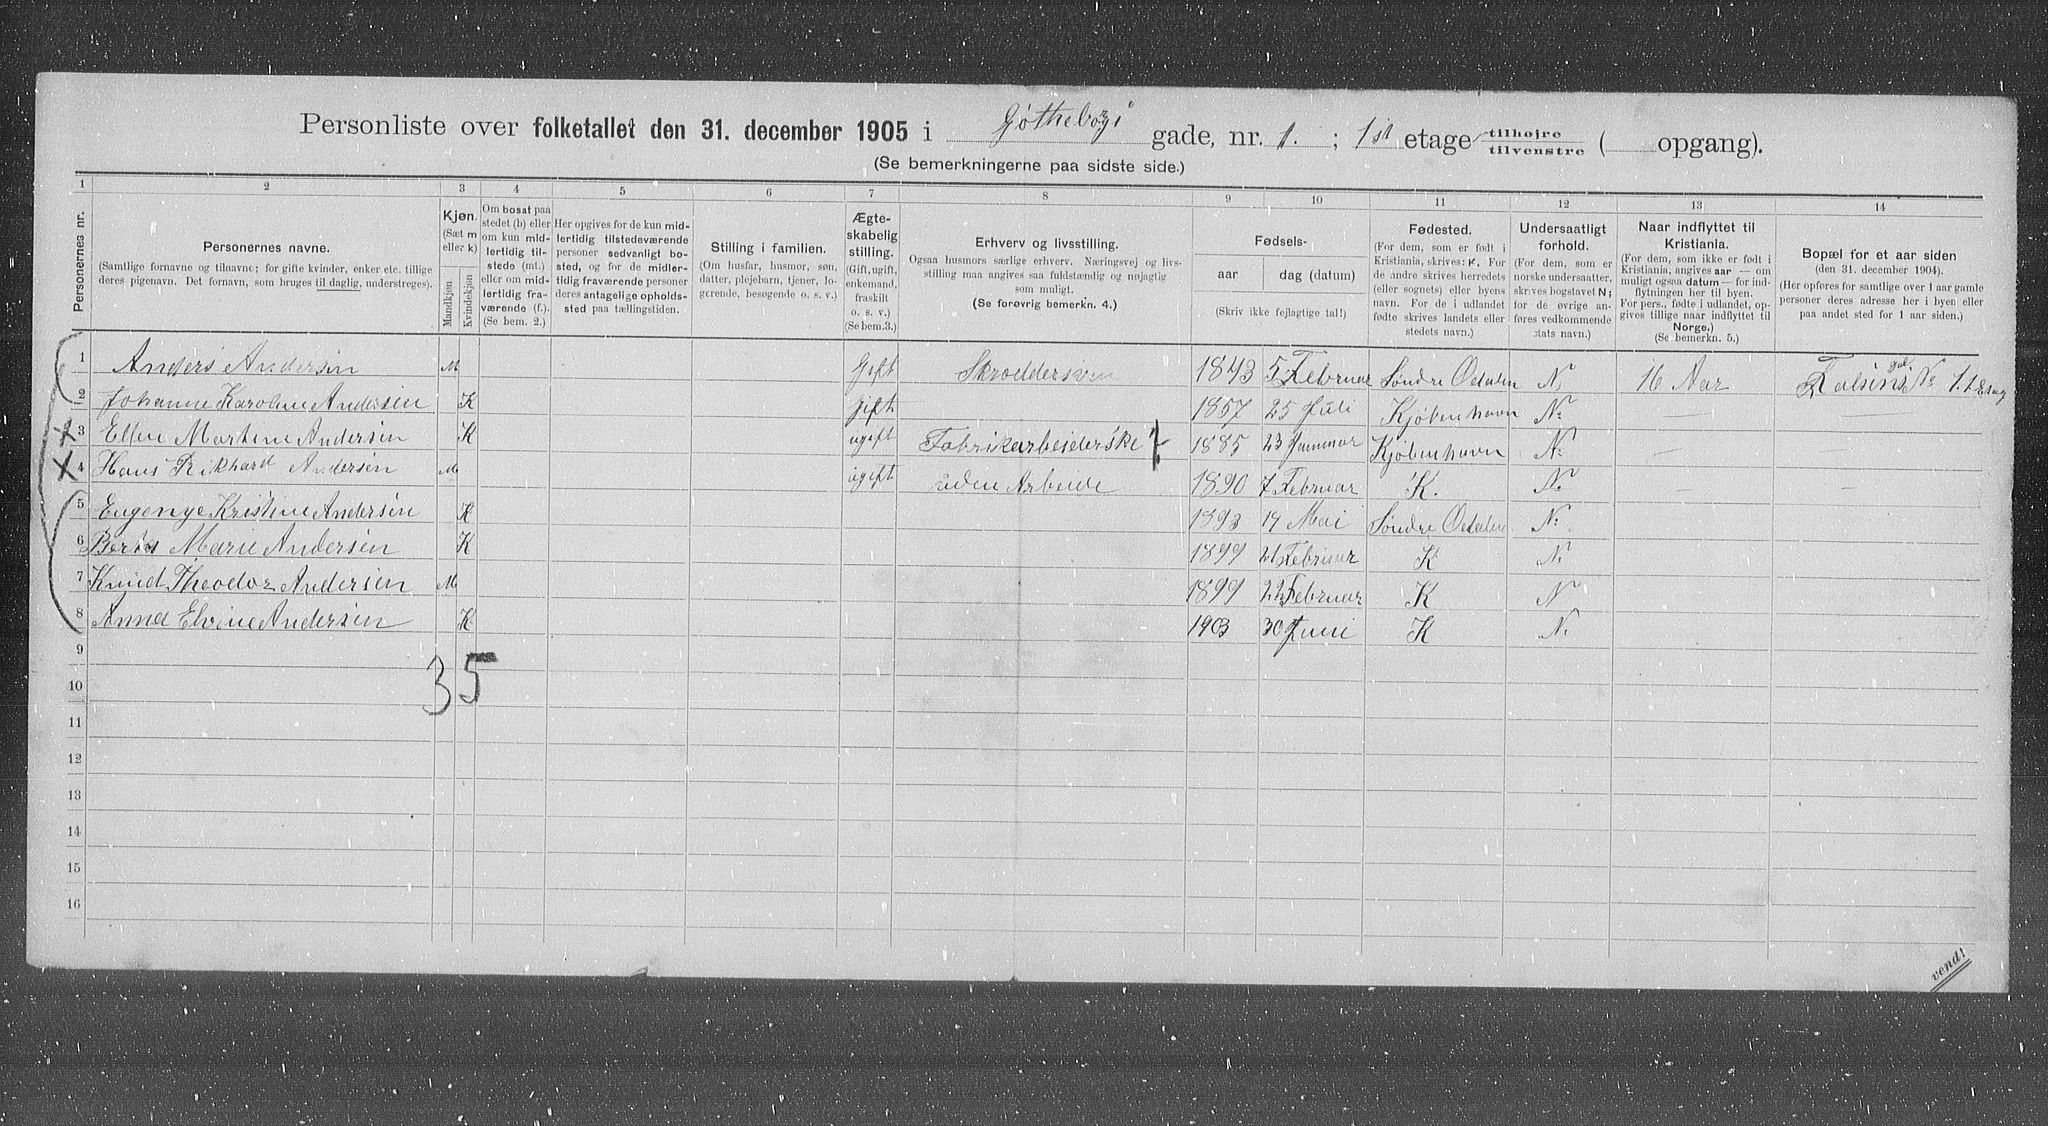 Personliste over folketallet den 31. december 1905 i Gøtheborgs gade, nr. 1. ; 1st etage tilhøjre tilvenstre ( opgang).
(Se bemerkningerne paa sidste side.)
1 2 3 4 5 6 7 8 9 10 11 12 13 14
Personernes nr.
Personernes navne.
(Samtlige fornavne og tilnavne; for gifte kvinder, enker etc. tillige deres pigenavn. Det fornavn, som bruges til daglig, understreges).
Kjøn.
(Sæt m eller k)
Mandkjøn
Kvindekjøn
Om bosat paa stedet (b) eller om kun midlertidig tilstede (mt.) eller om midlertidig fraværende (f.). (Se bem. 2.)
Her opgives for de kun midlertidig tilstedeværende personer sedvanligt bosted, og for de midlertidig fraværende personer deres antagelige opholdssted paa tællingstiden.
Stilling i familien.
(Om husfar, husmor, søn, datter, plejebarn, tjener, logerende, besøgende o. s. v.)
Ægteskabelig stilling.
(Gift, ugift, enkemand, fraskilt o. s. v.) (Se bem.3.)
Erhverv og livsstilling.
Ogsaa husmors særlige erhverv. Næringsvej og livsstilling maa angives saa fuldstændig og nøjagtig som muligt.
(Se forøvrig bemerkn. 4.)
Fødsels-
aar dag (datum)
(Skriv ikke fejlagtige tal!)
Fødested.
(For dem, som er født i Kristiania, skrives: K. For de andre skrives herredets (eller sognets) eller byens navn. For de i udlandet fødte skrives landets eller stedets navn.)
Undersaatligt forhold.
(For dem, som er norske undersaatter, skrives bogstavet N; for de øvrige anføres vedkommende stats navn.)
Naar indflyttet til Kristiania.
(For dem, som ikke er født i Kristiania, angives aar — om muligt ogsaa datum — for indflytningen her til byen. For pers., fødte i udlandet, opgives tillige naar indflyttet til Norge.)
(Se bemerkn. 5.)
Bopæl for et aar siden
(den 31. december 1904).
(Her opføres for samtlige over 1 aar gamle personer deres adresse her i byen eller paa andet sted for 1 aar siden.)
1 Anders Andersen M Gift 1843 5 Februar Søndre Odalen N 16 Aar
2 Johanne Karoline Andersen K gift 1857 25 Juli Kjøbenhavn N. — —
3 Ellen Martine Andersen K ugift Fabrikarbeiderske 7 1885 23 Januar Kjøbenhavn N. — —
4 Hans Rikhard Andersen M ugift uden Arbeide 1890 7 Februar K. N. — —
5 Eugenye Kristine Andersen K 1893 14 Mai Søndre Odalen N.
6 Marie Andersen K 1899 21 Februar K N
7 Knud Theodor Andersen M 1899 22 Februar K N
8 Anna Elvine Andersen K 1903 30 Juni K N.
9
3 5
10
11
12
13
14
15
16
vend!